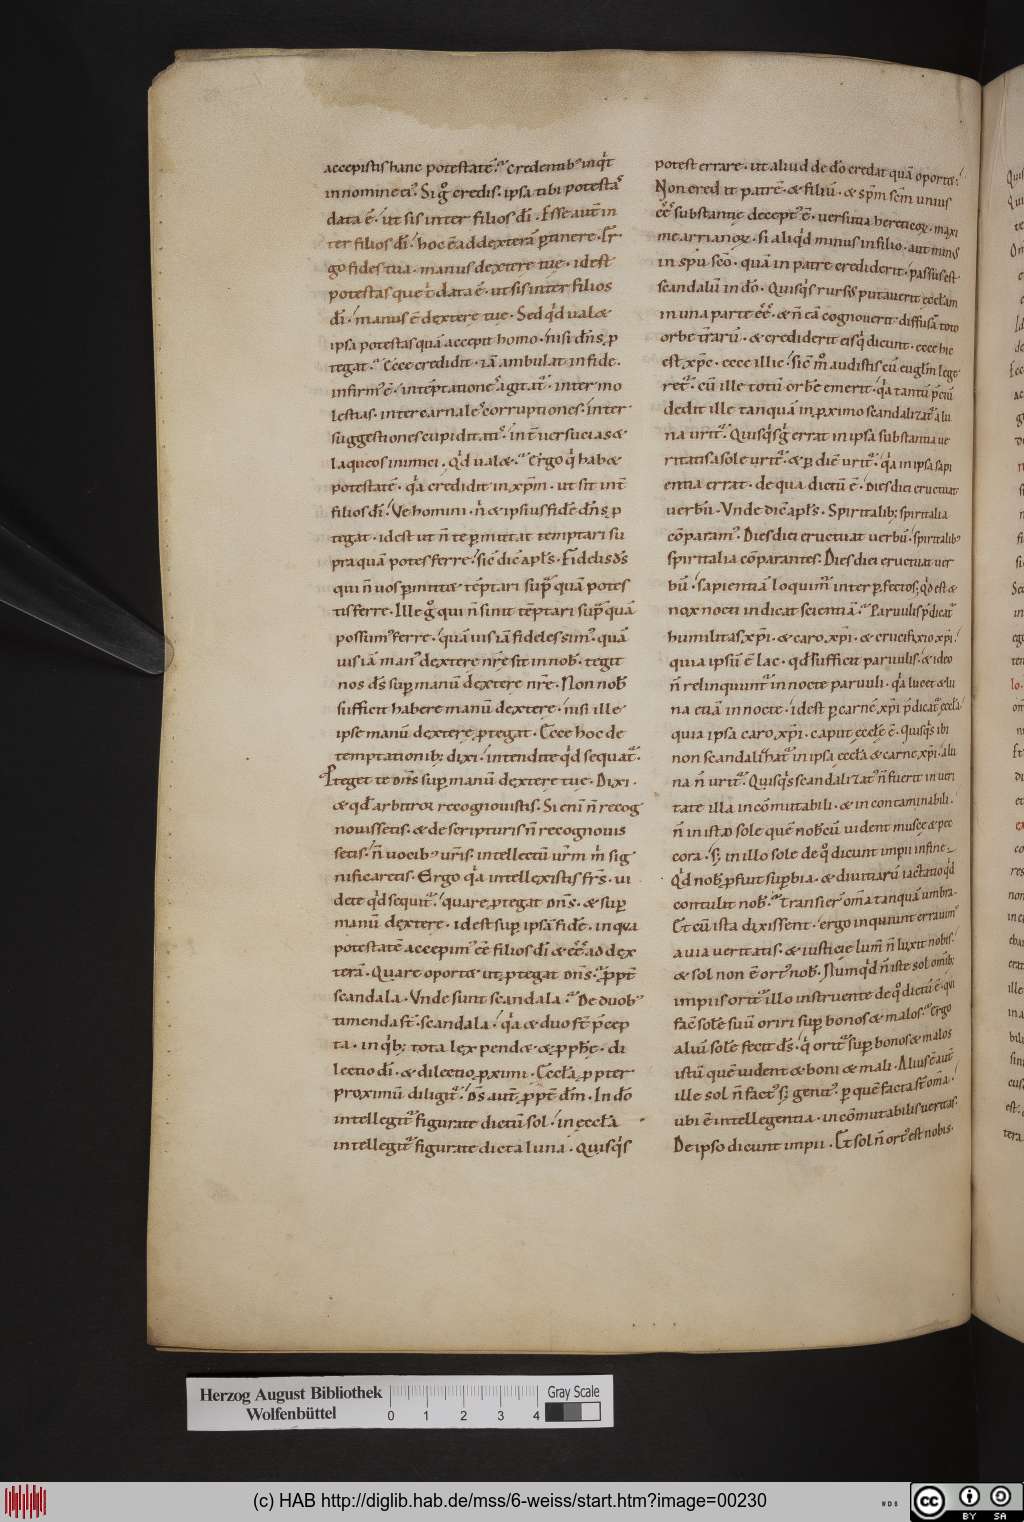 accepistis hanc potestatē. credentib; inqt
in nomine ei'. Si g° credis. ipsa tibi potestas
data ē. ut sis inter filios dī. Esse autē in
ter filios dī. hoc ē ad dexterā ptinere. Er
go fides tua. manus dexterę tuę. id est
potestas que t data ē. ut sis inter filios
dī. manus ē dexterę tuę. Sed qd ualet
ipsa potestas quā accepit homo. nisi dñs p
tegat. Ecce credidit. iā ambulat in fide.
infirm' ē. int tēptationes agitat. inter mo
lestias. inter carnales corruptiones. inter
suggestiones cupiditatis. int uersucias &
laqueos inimici. Qd ualet. Ergo q habet
potestatē. qa credidit in xpm. ut sit int
filios dī. Ve homini. n & ipsius fidē dñs p
tegat. id est ut ñ te pmittat temptari su
pra quā potes ferre. sic dic apls. Fidelis ds
qui ñ uos pmittet tēptari sup quā potes
tis ferre. Ille g° qui ñ sinit tēptari sup quā
possum' ferre. quāuis iā fideles sim'. quā
uis iā man' dexterę nrę sit in nob. tegit
nos ds sup manū dexterę nrę. Non nob
sufficit habere manū dexterę. nisi ille
ipse manū dexterę ptegat. Ecce hoc de
temptationib; dixi. intendite qd sequat.
Pteget te dñs sup manū dexterę tuę. Dixi.
& qd arbitror recognouistis. Si eni ñ recog
nouissetis. & de scripturis ñ recognouis
setis. ñ uocib; uris. intellectū urm m sig
nificaretis. Ergo qa intellexistis frs. ui
dete qd sequit. quare ptegat dñs. & sup
manū dexterę. id est sup ipsā fidē. in qua
potestatē accepim' eē filios dī & eē ad dex
terā. Quare oportet ut ptegat dñs. ppt
scandala. Vnde sunt scandala. De duob'
timenda st scandala. qa & duo st pcep
ta. in qb; tota lex pendet & pphē. di
lectio dī. & dilectio pximi. Eccła ppter
proximū diligit. Ds aut ppt dm. In dō
intellegit figurate dictū sol. in eccła
intellegit figurate dicta luna. Quisqs
potest errare. ut aliud de dō credat quā oportet.
Non credit patrē. & filiū. & spm scm unius
eē substantię. decept' ē. uersutia hereticoꝝ. maxi
me arrianoꝝ. si aliqd minus in filio. aut minus
in spū scō. quā in patre crediderit. passus est
scandalū in dō. Quisqs rursus putauerit eccłam
in una parte eē. & ñ eā cognouerit diffusā toto
orbe trarū. & crediderit eis q dicunt. ecce hic
est xpc. ecce illic. sic m audistis cū euglm lege
ret. cū ille totū orbē emerit. qa tantū pciū
dedit ille tanquā in pximo scandalizat a lu
na urit. Quisqs g errat in ipsa substantia ue
ritatis a sole urit. & p diē urit. qa in ipsa sapi
entia errat. de qua dictū ē. Dies diei eructuat
uerbū. Vnde dic apls. Spiritalib; spiritalia
cōparam'. Dies diei eructuat uerbū. spiritalib'
spiritalia cōparantes. Dies diei eructuat uer
bū. sapientiā loquim inter pfectos; Qd est &
nox nocti indicat scientiā. Paruulis pdicat
humilitas xpi. & caro xpi. & crucifixio xpi.
quia ipsū ē lac. qd sufficit paruulis. & ideo
ñ relinquunt in nocte paruuli. qa lucet & lu
na etiā in nocte. id est p carnē xpi pdicat eccła.
quia ipsa caro xpi. caput eccłę ē. Quisqs ibi
non scandalizat in ipsa eccła & carne xpi. a lu
na ñ urit. Quisqs scandalizat' ñ fuerit in ueri
tate illa incōmutabili. & in contaminabili.
ñ in isto sole quē nobcū uident muscę & pe
cora. s; in illo sole de q° dicunt impii in fine.
Qd nob pfuit supbia. & diuitiarū iactatio qd
contulit nob. Transier oma tanquā umbra.
Et cū ista dixissent. ergo inquiunt errauim'
a uia ueritatis. & iusticię lum ñ luxit nobis.
& sol non ē ort' nob. Numqd ñ iste sol omib;
impiis orit illo instruente de q° dictū ē. qui
fac solē suū oriri sup bonos & malos. Ergo
aliū solē fecit ds. q orit sup bonos & malos
istū quē uident & boni & mali. Alius ē aut
ille sol ñ fact' s; genit'. p quē facta st oma.
ubi ē intellegentia. incōmutabilis ueritas.
De ipso dicunt impii. Et sol ñ ort' est nobis.
Herzog August Bibliothek
Wolfenbüttel
0 1 2 3 4
Gray Scale
(c) HAB http://diglib.hab.de/mss/6-weiss/start.htm?image=00230
cc BY SA